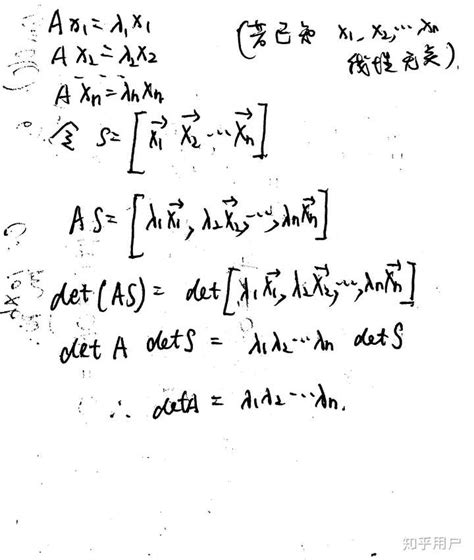 Ax₁=λ₁x₁ (若已知 x₁, x₂, ⋯ xₙ
Ax₂=λ₂x₂ 线性无关)
Axₙ=λₙxₙ
令 S=[x⃗₁ x⃗₂ ⋯ x⃗ₙ]
AS=[λ₁x⃗₁, λ₂x⃗₂, ⋯, λₙx⃗ₙ]
det(AS)= det[λ₁x⃗₁, λ₂x⃗₂, ⋯, λₙx⃗ₙ]
det A detS = λ₁λ₂⋯λₙ detS
∴ detA = λ₁λ₂⋯λₙ.
知乎用户